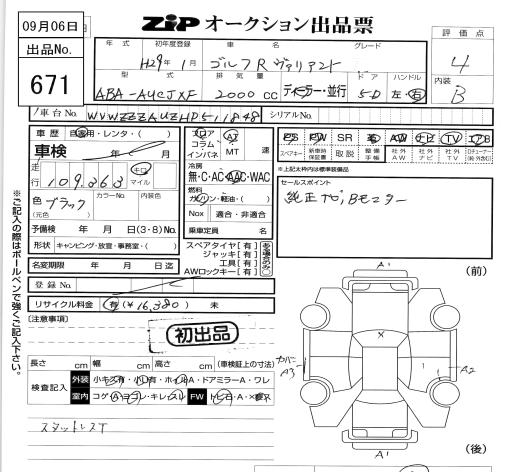 09月06日
出品No.
671
ZIP オークション出品票
年式 初年度登録 車名 グレード
H29年 1月 ゴルフRヴァリアント
型式 排気量 ドア ハンドル
ABA-AUCJXF 2000cc ディーラー・並行 5D 左・右
評価点
4
内装
B
車台No. WVWZZZAUZHP511848 シリアルNo.
車歴 自家用・レンタ・( )
車検 年 月
走行 109,363 キロ マイル
色 ブラック カラーNo. 内装色
(元色)
予備検 年 月 日(3・8)No.
形状 キャンピング・放宣・事務室・( )
名変期限 年 月 日迄
登録No.
リサイクル料金 有(¥16,380) 未
フロア AT
コラム
インパネ MT 速
冷房
無・C・AC・AAC・WAC
燃料
ガソリン・軽油・( )
Nox 適合・非適合
乗車定員 名
スペアタイヤ【有】
ジャッキ【有】
工具【有】
AWロックキー【有】
PS PW SR 革 AW ナビ TV エアB
スペアキー 新車時保証書 取説 整備手帳 社外AW 社外ナビ 社外TV
※上記太枠内は標準装備品
セールスポイント
純正ナビ,Bモニター
※ご記入の際はボールペンで強くご記入下さい。
[注意事項]
初出品
長さ cm 幅 cm 高さ cm (車検証上の寸法)
検査記入 外装 小キズ有・小凹有・ホイルA・ドアミラーA・ワレ
室内 コゲA・ヨゴレ・キレ・スレ FW トビ石・A・×要ス
スタッドレスT
(前)
A1
カバー
A3
A2
A1
(後)